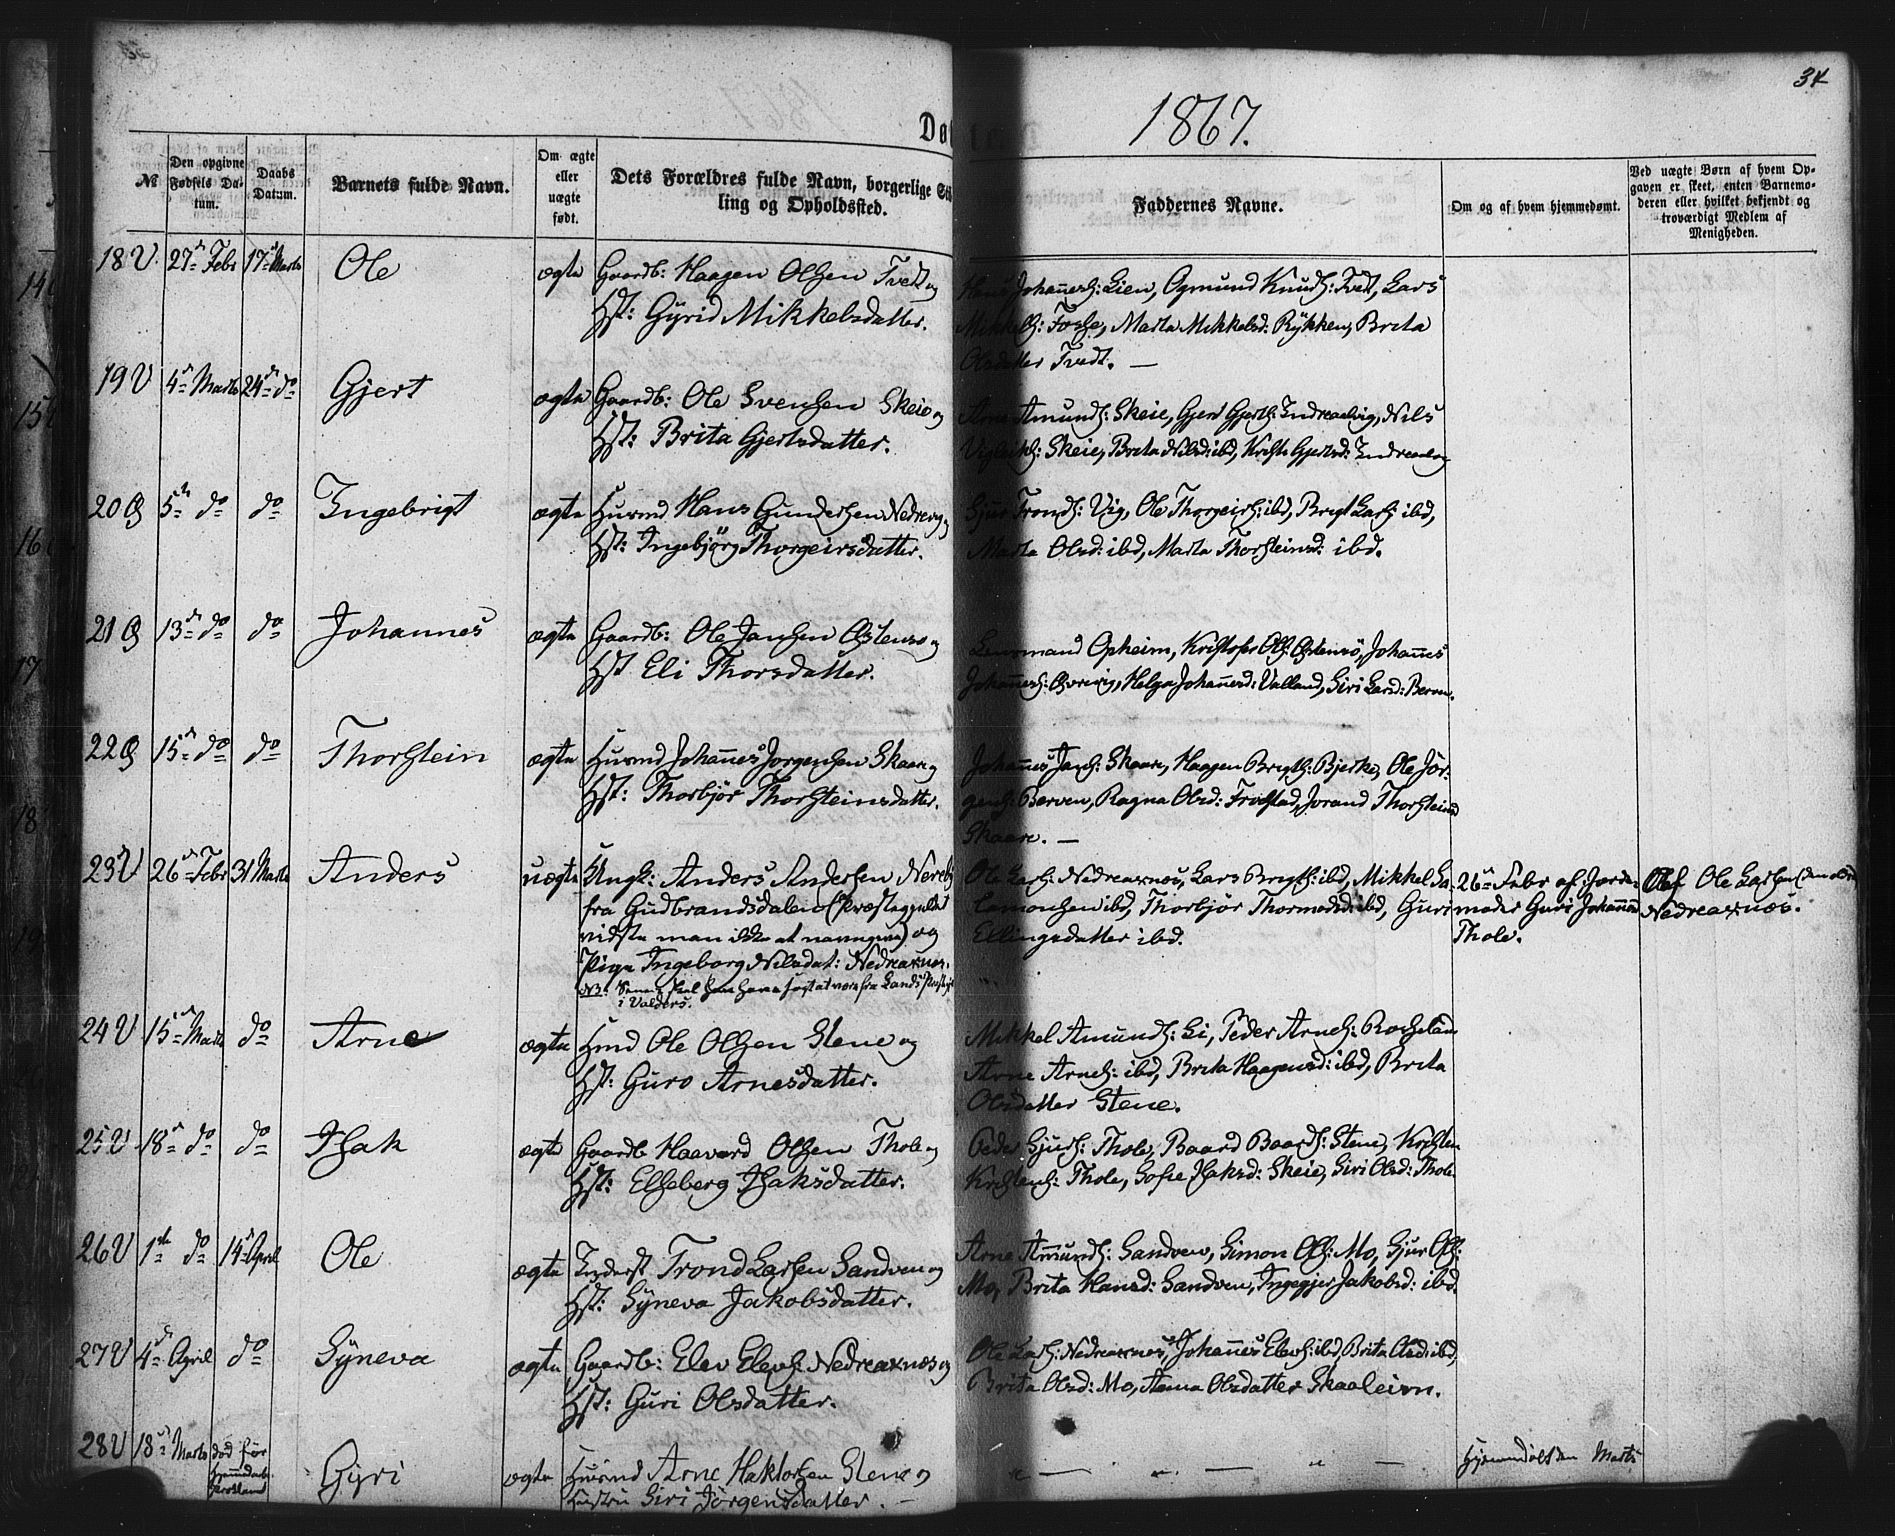 34
1867.
Døb
№
Den opgivne Fødsels Da-
tum.
Daabs
Datum.
Barnets fulde Navn.
Om ægte
eller
uægte
født.
Dets Forældres fulde Navn, borgerlige Stil-
ling og Opholdssted.
Faddernes Navne.
Om og af hvem hjemmedømt.
Ved uægte Børn af hvem Op-
gaven er skeet, enten Barnemo-
deren eller hvilket bekjendt og
troværdigt Medlem af
Menigheden.
18 V. 27de Febr 17de Marts Ole ægte Gaardb: Haagen Olsen Tvedt og
Hst: Gyrid Mikkelsdatter.
Hans Johanness: Lien, Ogmund Knuds: Tvedt, Lars
Mikkels: Fosse, Marta Mikkelsd: Rykken, Brita
Olsdatter Tvedt. —
19 V 4de Marts 24de do Gjert ægte Gaardb: Ole Svensen Skeie og
Hst: Brita Gjertsdatter.
Arne Amunds: Skeie, Gjert Gjerts: Indreaalvig, Nils
Vigleiks: Skeie, Brita Nilsd: ibd, Gjertsd:
20 Ø 5te do do Ingebrigt ægte Husmd Hans Gundersen Nedrevig og
Hst: Ingebjørg Thorgeirsdatter.
Sjur Tronds: Vig, Ole Thorgeirs: ibd, Brigt Lars: ibd,
Marta Olsd: ibd, Marta Thorsteinsd: ibd.
21 Ø 13de do do Johannes ægte Gaardb: Ole Jansen Østensø og
Hst Eli Thorsdatter.
Lensmand Opheim, Kristofer Ols: Østensø, Johannes
Johanness: Øvrevig, Helga Johannesd: Valland, Siri Larsd: Berven.
22 Ø 15de do do Thorstein ægte Husmd Johannes Jørgensen Skaare og
Hst: Thorbjør Thorsteinsdatter.
Johannes Jans: Skaare, Haagen Brigts: Bjerke, Ole Jør-
gens: Berven, Ragna Olsd: Frøstad, Jorand Thorsteinsd
Skaare. —
23 V 26de Febr 31 Marts Anders uægte Ungk: Anders Andersen
fra Gudbrandsdalen (Præstegjeldet
vidste man ikke at navngive) og
Pige Ingeborg Nilsdat: Nedreaxnes.
NB. Senere skal han have sagt at være fra Lands
i Valders.
Ole Lars: Nedreaxnes, Lars Brigts: ibd, Mikkel Sa-
lomonsen ibd, Thorbjør Thormodsd: ibd, Guri
Ellingsdatter ibd.
26de Febr af Jorde-
moder Guri Johannesd
Thole.
Af Ole Larsen (den ældre)
Nedreaxnes.
24 V 15de Marts do Arne ægte Hmd Ole Olsen Stene og
Hst: Guro Arnesdatter.
Mikkel Amunds: Li, Peder Arnes:
Arne Arnes: ibd, Brita Haagensd: ibd, Brita
Olsdatter Stene.
25 V 18de do do Isak ægte Gaardb Haavard Olsen Thole og
Hst: Elseberg Isaksdatter.
Peder Sjurs: Thole, Baard Baards: Stene, Kristen
Kristens: Thole, Sofie Isaksd: Skeie, Siri Olsd: Thole
26 V 1ste do 14de April Ole ægte Inderst Trond Larsen Sandven og
Hst: Syneva Jakobsdatter.
Arne Amunds: Sandven, Simon Ols: Mo, Sjur Ols:
Mo, Brita Hansd: Sandven, Ingegjer Jakobsd: ibd.
27 V 4de April do Syneva ægte Gaardb: Elev Elevs: Nedreaxnes og
Hst: Guri Olsdatter.
Ole Lars: Nedreaxnes, Johannes Elevs: ibd, Brita Olsd: ibd,
Brita Olsd: Mo, Anna Olsdatter Skaaleim.
28 V 18de Marts død før
Gyri ægte Husmd Arne Haktorsen Stene og
Hustru Siri Jørgensdatter. —
Hjemmedøbt den Marts